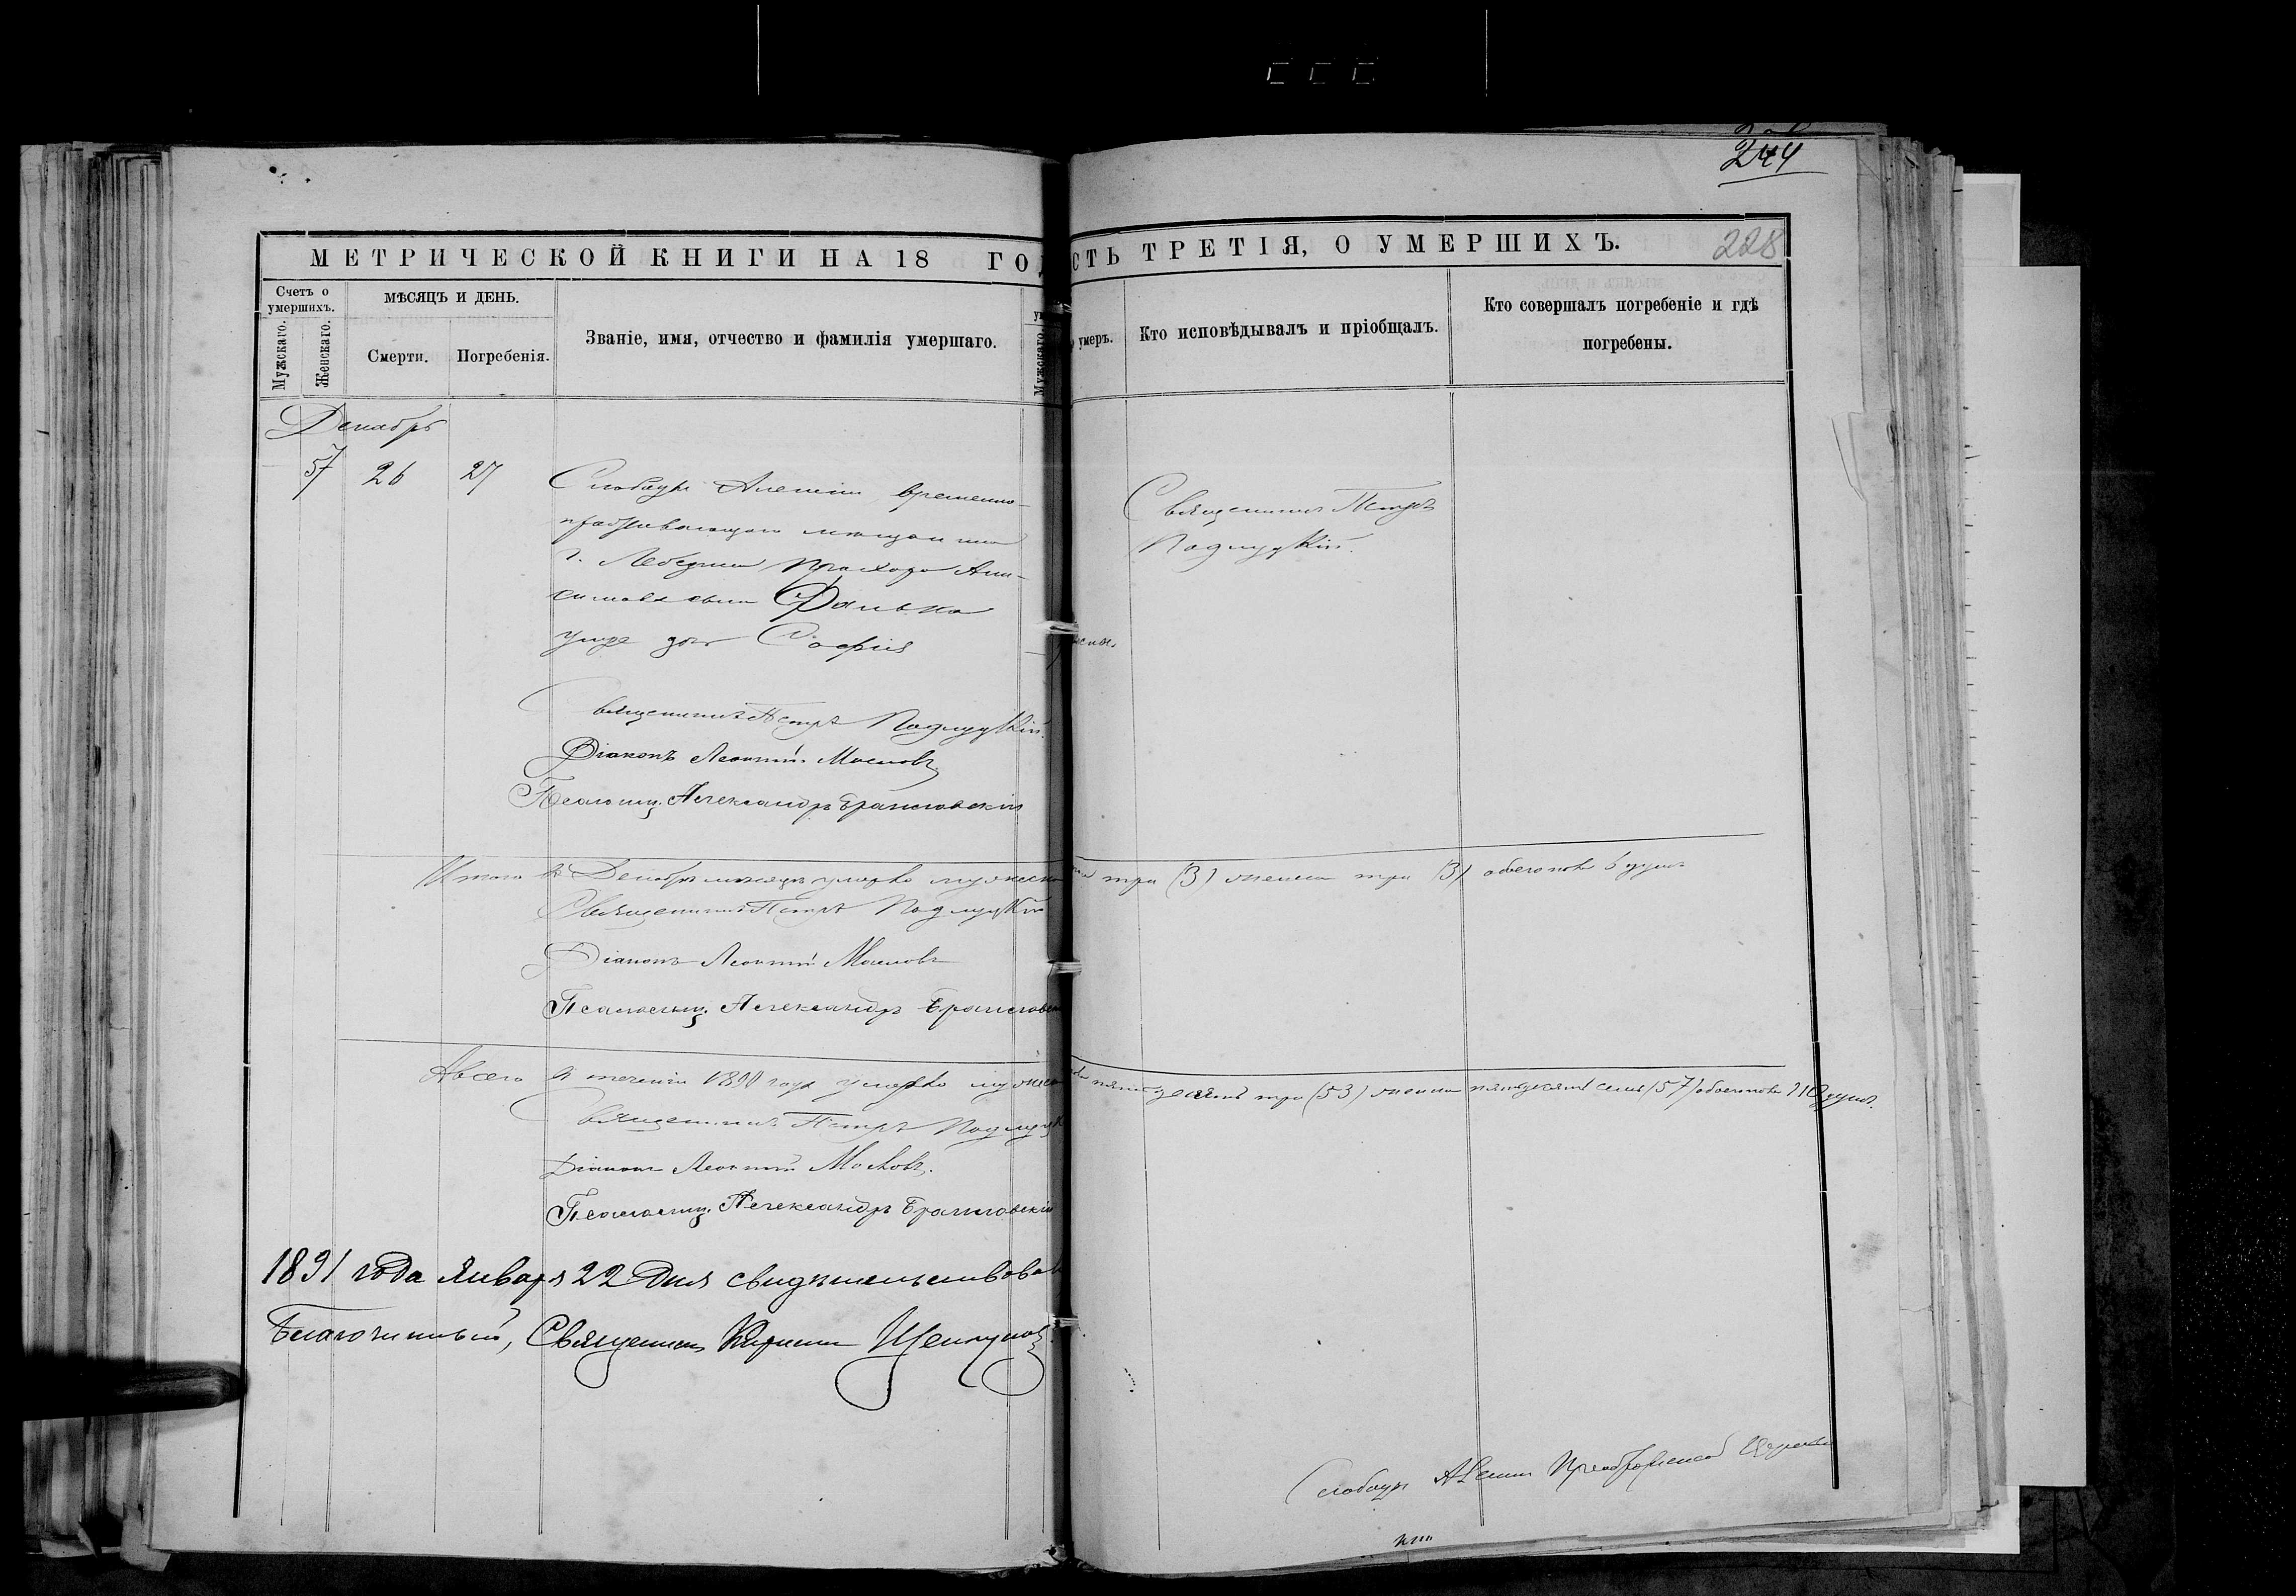 244
МЕТРИЧЕСКОЙ КНИГИ НА 18 ГОД
СТЬ ТРЕТІЯ, О УМЕРШИХЪ.
228
Счетъ о умершихъ.
Мужскаго.
Женскаго.
МѢСЯЦЪ И ДЕНЬ.
Смерти.
Погребенія.
Званіе, имя, отчество и фамилія умершаго.
Мужскаго
умеръ.
Кто исповѣдывалъ и пріобщалъ.
Кто совершалъ погребеніе и гдѣ
погребены.
Декабрь
57 26 27
Слободы Алешни временно-
проживающаго мѣщанина
г. Лебедина Прохора Ани-
симова сына
дочь Софія
Священникъ Петръ
Подлуцкій.
Священникъ Петръ Подлуцкій.
Діаконъ Леонтій Масловъ
Псаломщ. Александръ
Итого въ Декабрѣ мѣсяцѣ умерло мужеска
три (3) женска три (3) обоего пола 6 душъ
Священникъ Петръ Подлуцкій
Діаконъ Леонтій Масловъ
Псаломщ. Александръ
А всего въ теченіи 1890 года умерло мужеска
пятьдесятъ три (53) женска пятьдесятъ семь (57) обоего пола 110 душъ.
Священникъ Петръ Подлуцк
Діаконъ Леонтій Масловъ.
Псаломщ. Александръ
1891 года Января 22 Дня свидѣтельствовал
Благочинный, Священникъ
Слободы Алешни Преображенской Церкви